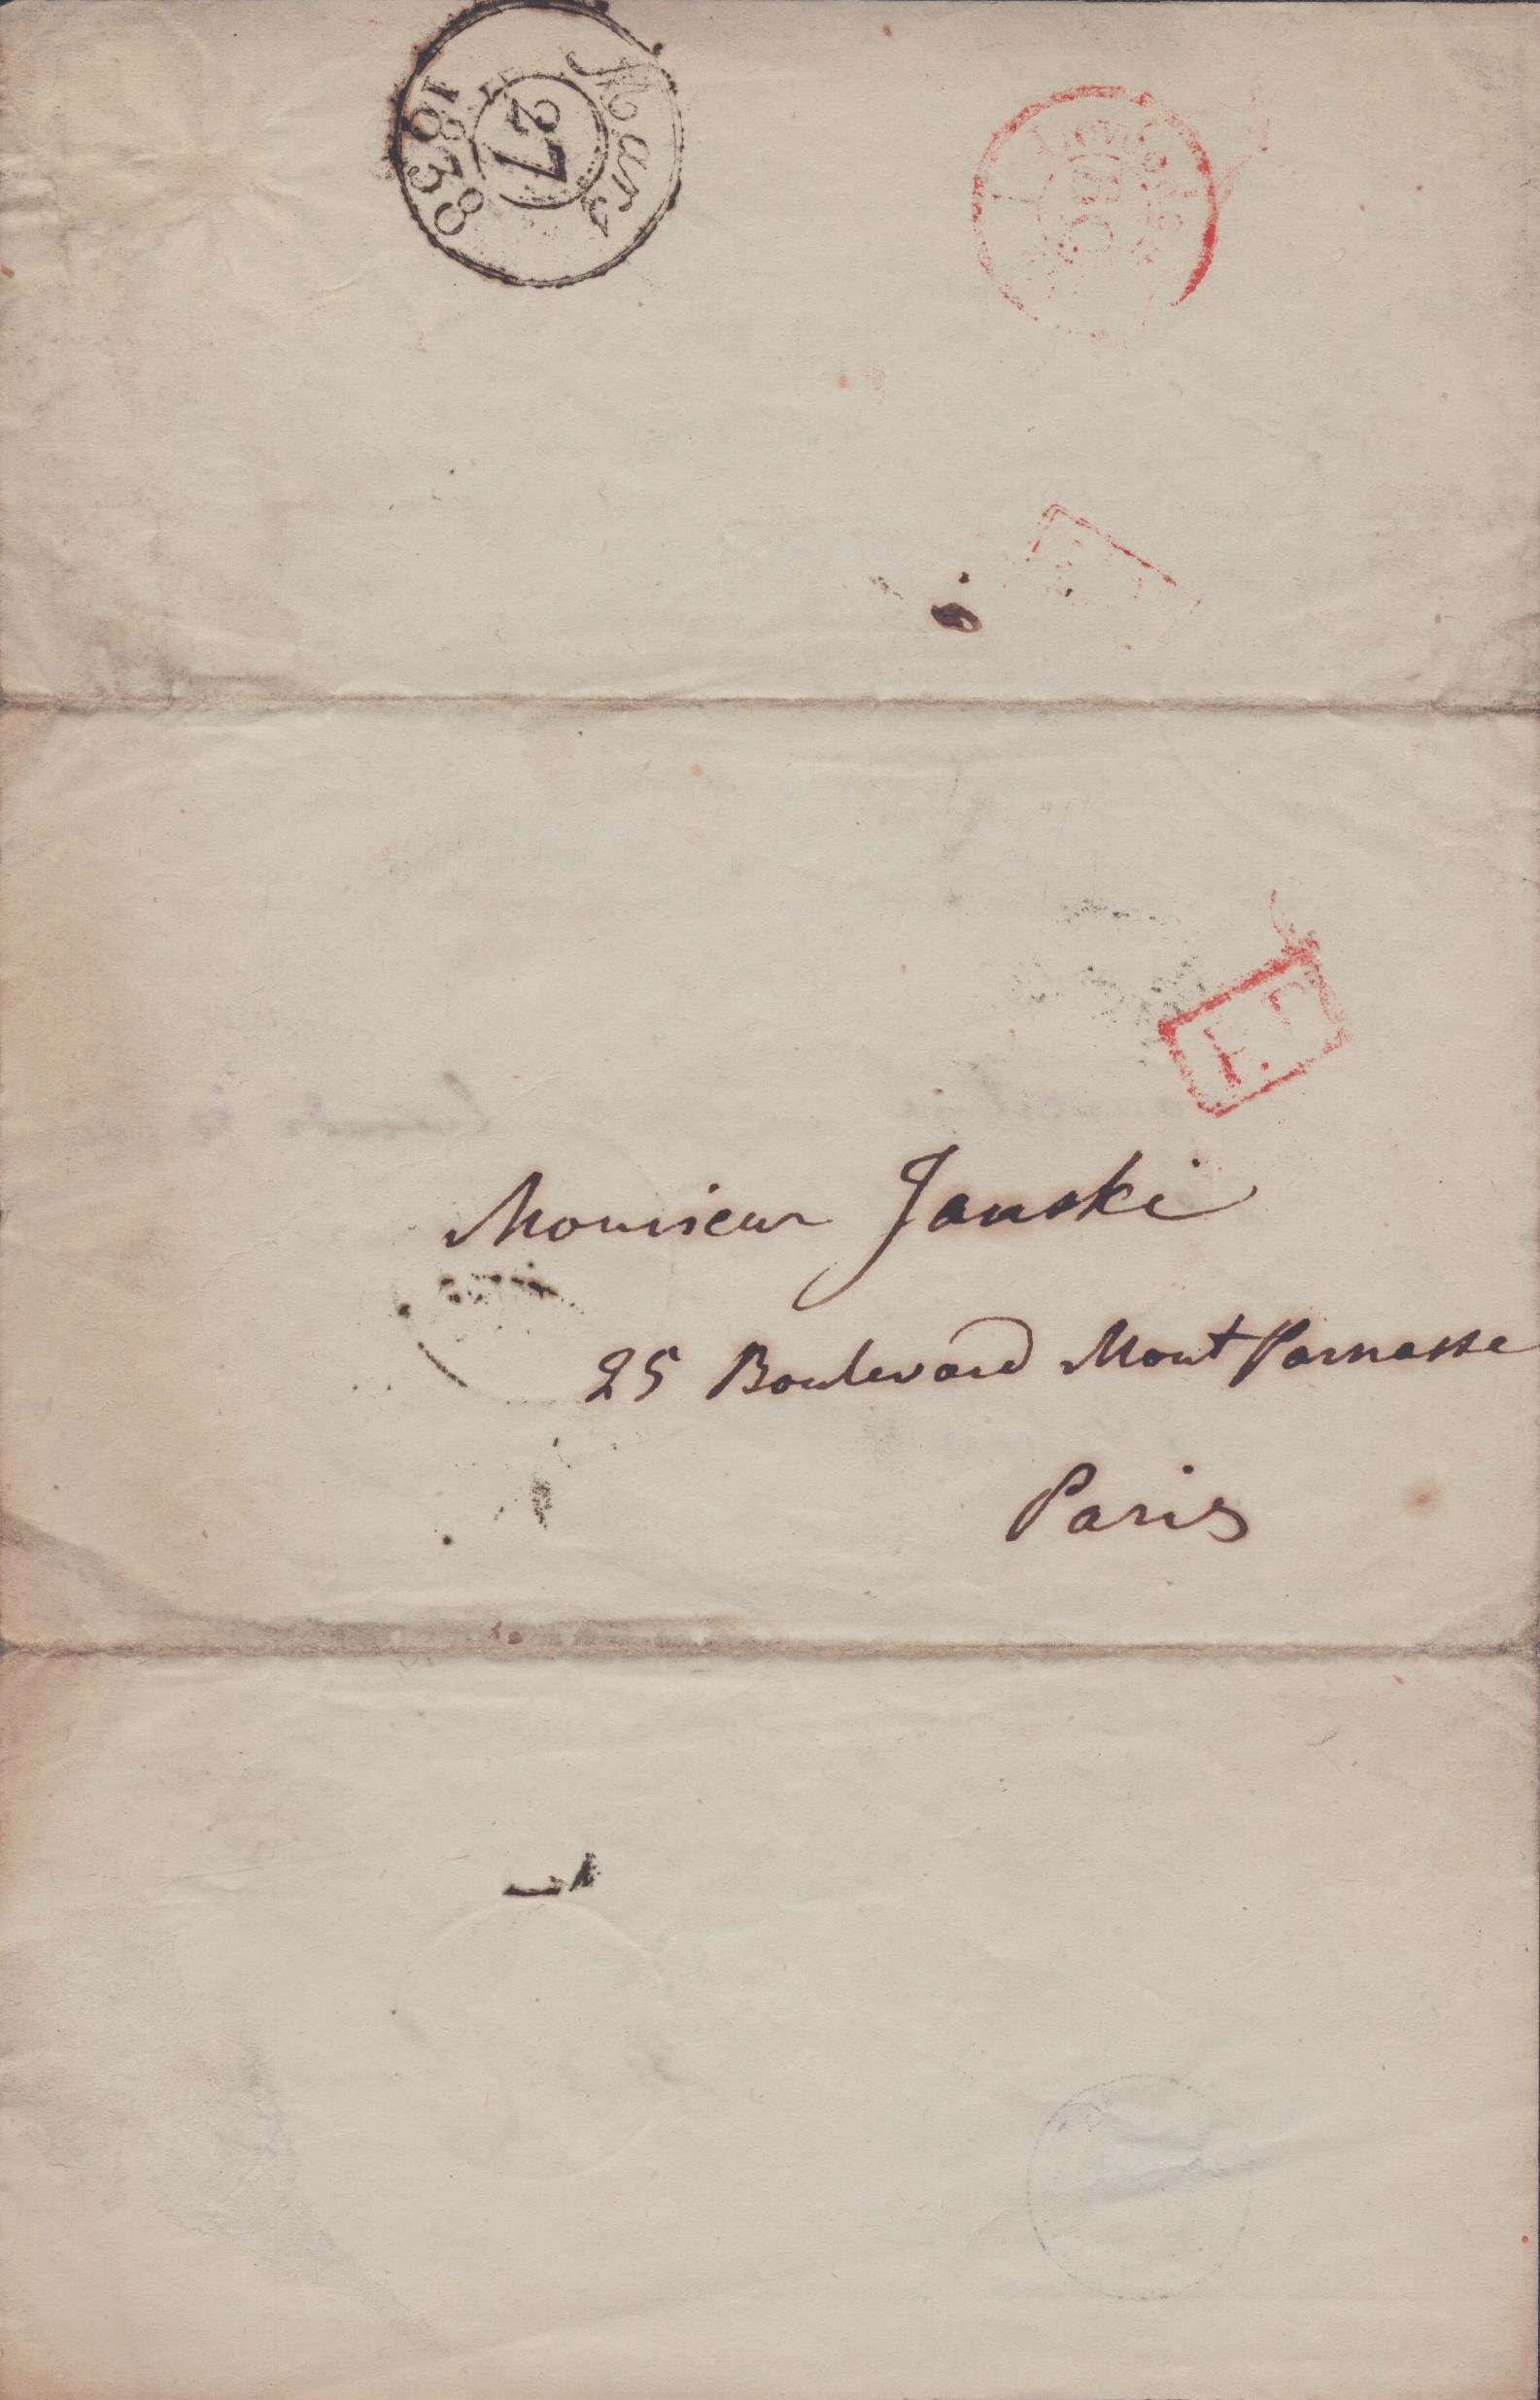 Mars
27
1838
Monsieur Janski
25 Boulevard Mont Parnasse
Paris